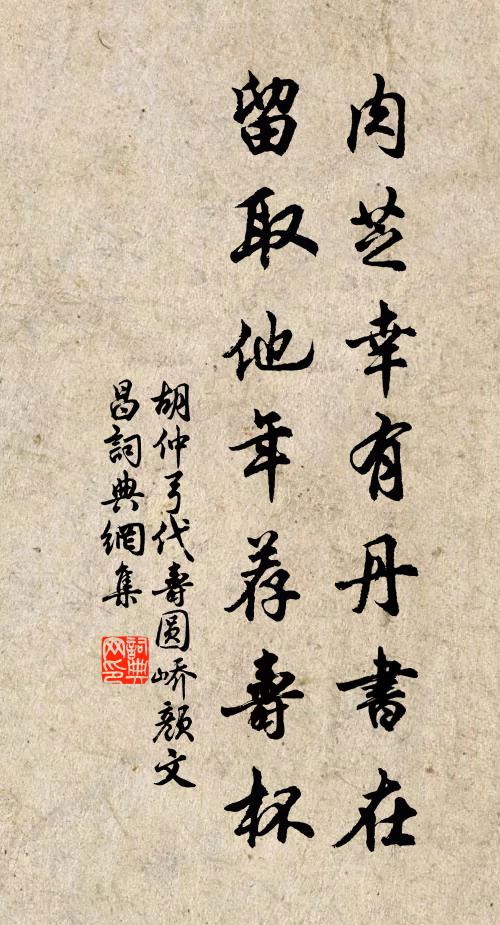 肉芝幸有丹書在
留取他年荐壽杯
胡仲弓代壽圆嶠顏文
昌詞典網集
詞典
网印